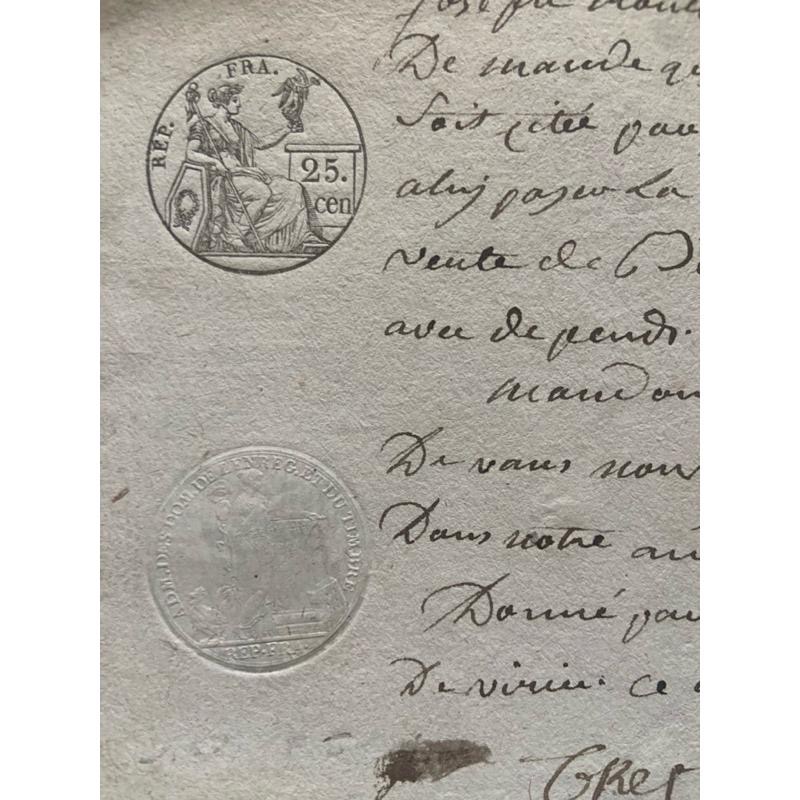 REP. FRA.
25.
cen
ADM. DES DOM. DE L'ENREG. ET DU TIMBRE
REP. FRA.
De mande
Soit citée pau
La
vente de
avec de pends.
mandon
De vans nour
Dans notre au
Donné pau
De virieu. ce